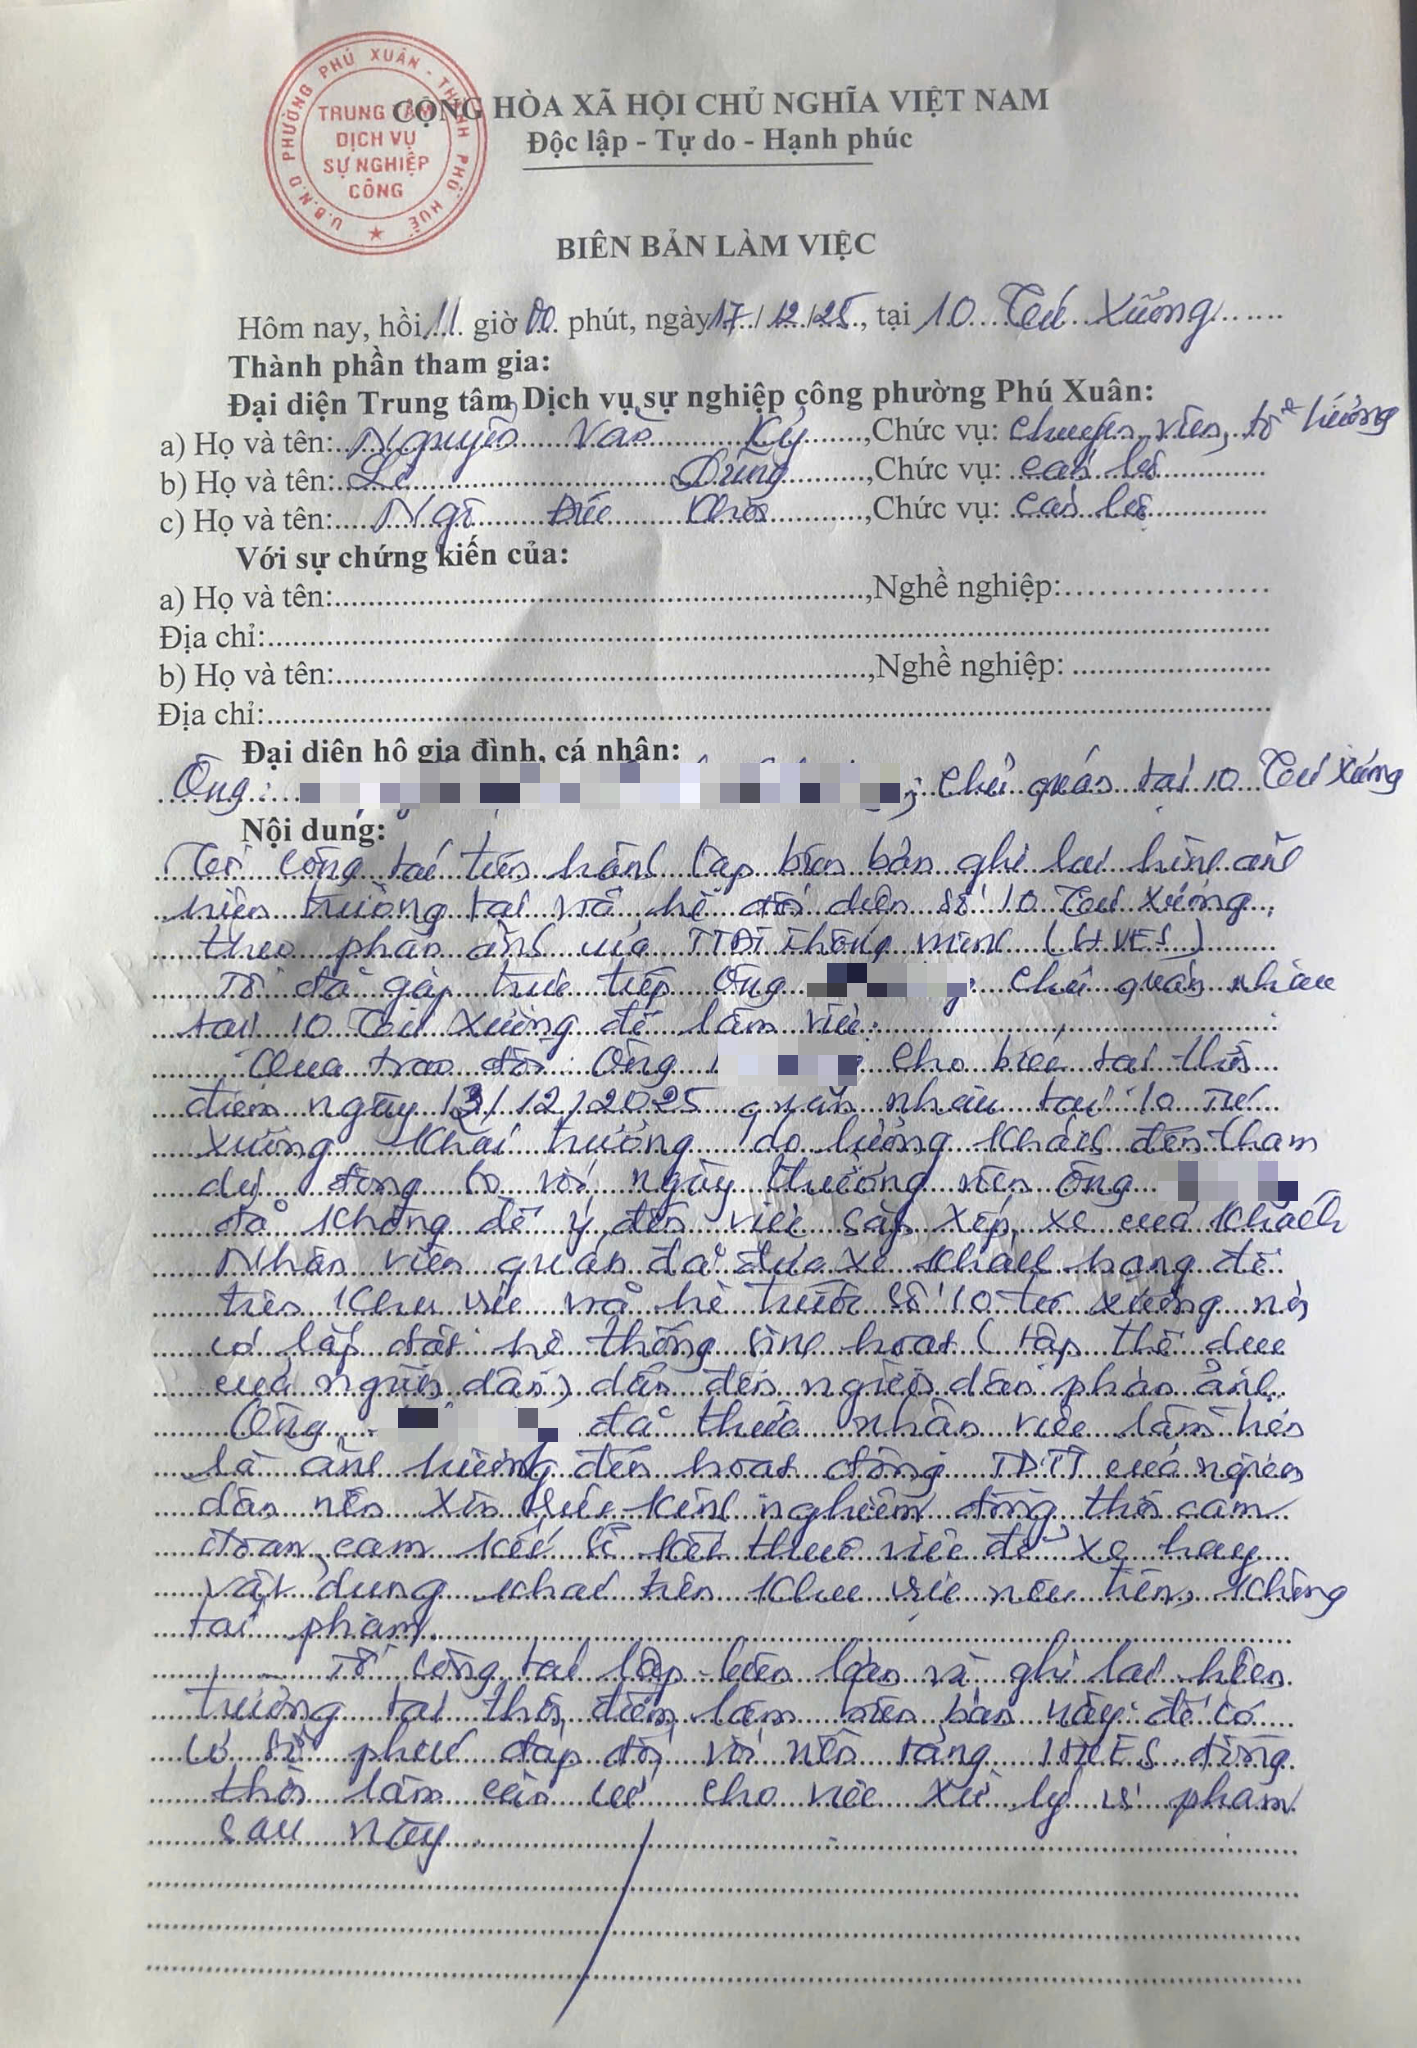 U.B.N.D PHƯỜNG PHÚ XUÂN - THÀNH PHỐ HUẾ
TRUNG TÂM
DỊCH VỤ
SỰ NGHIỆP
CÔNG
CỘNG HÒA XÃ HỘI CHỦ NGHĨA VIỆT NAM
Độc lập - Tự do - Hạnh phúc
BIÊN BẢN LÀM VIỆC
Hôm nay, hồi 11 giờ 00 phút, ngày 17/12/25, tại 10 Tú Xương
Thành phần tham gia:
Đại diện Trung tâm Dịch vụ sự nghiệp công phường Phú Xuân:
a) Họ và tên: Nguyễn Văn Kỷ, Chức vụ: chuyên viên, tổ trưởng
b) Họ và tên: Lê Dũng, Chức vụ: cán bộ
c) Họ và tên: Ngô Đức, Chức vụ: cán bộ
Với sự chứng kiến của:
a) Họ và tên:, Nghề nghiệp:
Địa chỉ:
b) Họ và tên:, Nghề nghiệp:
Địa chỉ:
Đại diện hộ gia đình, cá nhân:
Ông: ; chủ quán tại 10 Tú Xương
Nội dung:
Tổ công tác tiến hành lập biên bản ghi lại hình ảnh
hiện trường tại vỉa hè đối diện số 10 Tú Xương,
theo phản ánh của TTĐT thông minh (HUES)
Tổ đã gặp trực tiếp ông chủ quán nhậu
tại 10 Tú Xương để làm việc.
Qua trao đổi: Ông cho biết tại thời
điểm ngày 13/12/2025 quán nhậu tại 10 Tú
Xương khai trương, do lượng khách đến tham
dự đông so với ngày thường nên ông
đã không để ý đến việc sắp xếp xe của khách
Nhân viên quán đã đưa xe khách hàng để
trên khu vực vỉa hè trước số 10 Tú Xương nơi
có lắp đặt hệ thống sinh hoạt (tập thể dục
của người dân) dẫn đến người dân phản ánh.
Ông đã thừa nhận việc làm trên
là ảnh hưởng đến hoạt động TDTT của người
dân nên xin rút kinh nghiệm đồng thời cam
đoan cam kết sẽ thực việc để xe hay
vật dụng khác trên khu vực nêu trên, không
tái phạm.
Tổ công tác lập biên bản và ghi lại hiện
trường tại thời điểm làm biên bản này để có
cơ sở phúc đáp đối với nền tảng HUES đồng
thời làm căn cứ cho việc xử lý vi phạm
sau này.